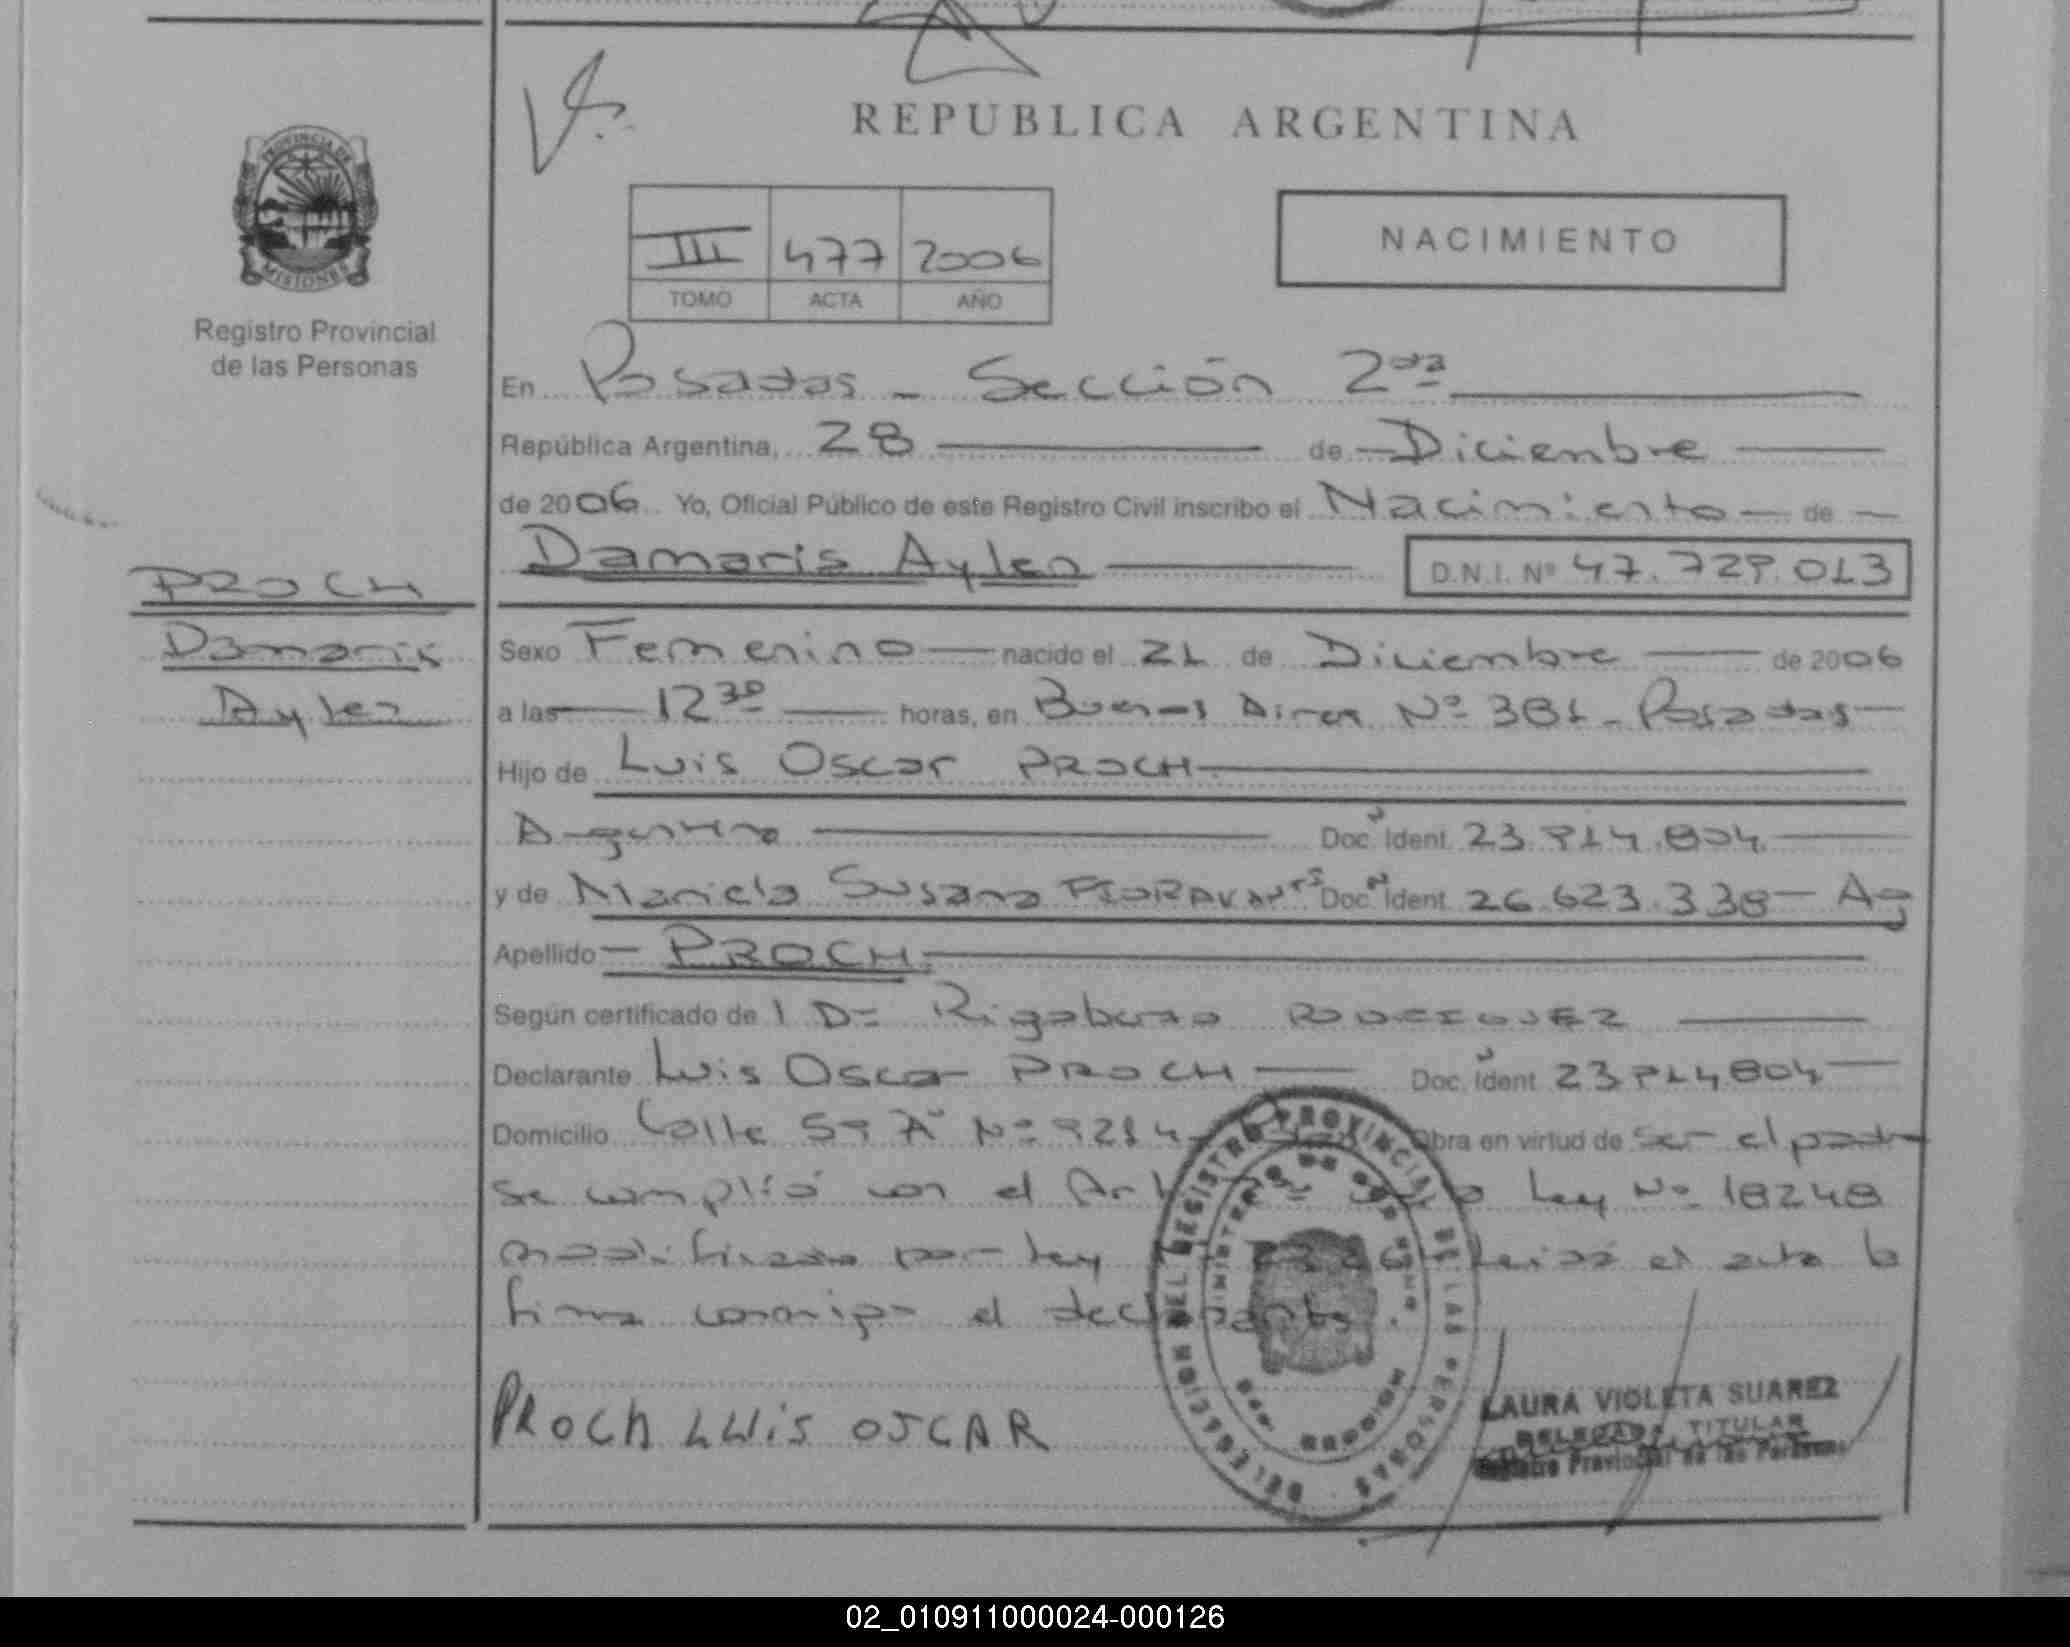 REPUBLICA ARGENTINA
PROVINCIA DE
MISIONES
Registro Provincial
de las Personas
III 477 2006
TOMO ACTA AÑO
NACIMIENTO
En Posadas - Sección 2da
República Argentina, 28 de Diciembre
de 2006 Yo, Oficial Público de este Registro Civil inscribo el Nacimiento de
Damaris Aylen D.N.I. Nº 47.729.013
PROCH
Damaris
Aylen
Sexo Femenino nacido el 21 de Diciembre de 2006
a las 12 30 horas, en Buenos Aires Nº 381 - Posadas
Hijo de Luis Oscar PROCH
Argentino Doc. Ident. 23.914.804
y de Mariela Susana FIORAVANTI Doc. Ident. 26.623.338 - Ag
Apellido PROCH
Según certificado de Rigoberto RODRIGUEZ
Declarante Luis Oscar PROCH Doc. Ident. 23914804
Domicilio Calle 59 A Nº 9214 Obra en virtud de ser el padre
se cumplió con el Art Ley Nº 18248
modificado por Ley Leida el acta la
firma conmigo el declarante.
PROCH LUIS OSCAR
DELEGACION DEL REGISTRO PROVINCIAL DE LAS PERSONAS
MISIONES
LAURA VIOLETA SUAREZ
DELEGADA TITULAR
Registro Provincial de las Personas
02_010911000024-000126